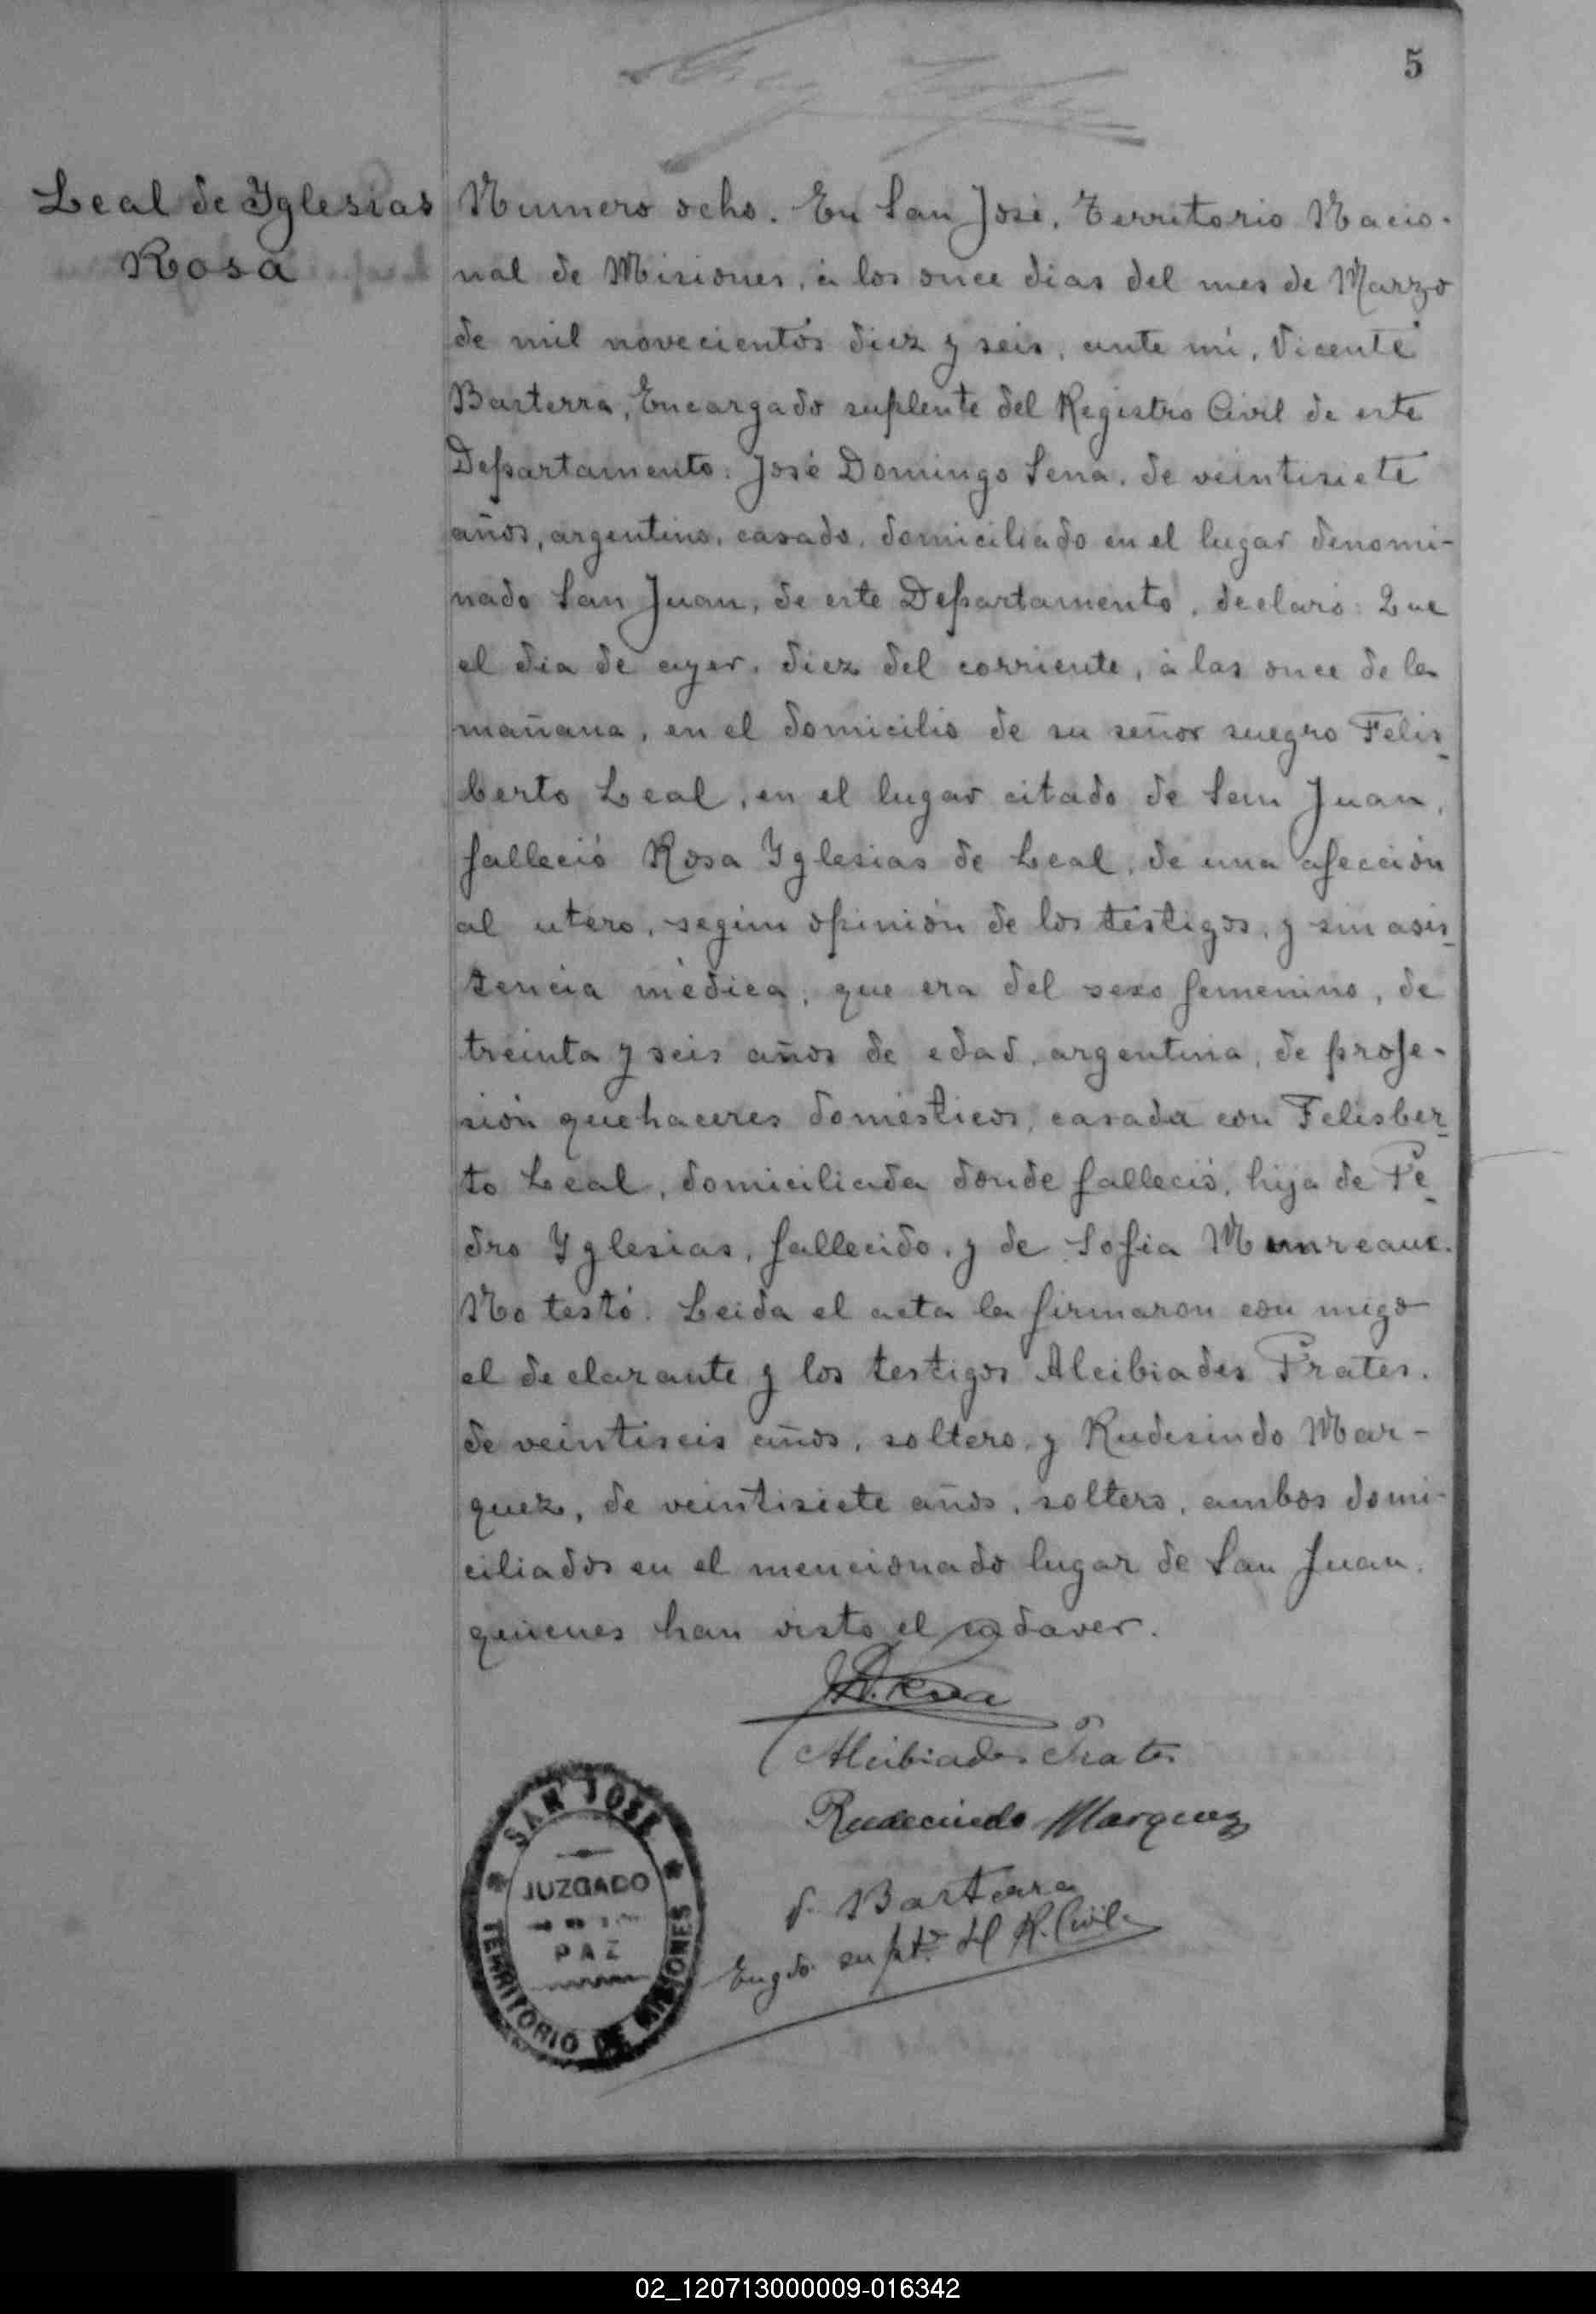 5
Leal de Yglesias
Rosa
Numero ocho. En San José, Territorio Nacio-
nal de Misiones, á los once dias del mes de Marzo
de mil novecientos diez y seis, ante mi, Vicente
Basterra, Encargado suplente del Registro Civil de este
Departamento: José Domingo Sena, de veintisiete
años, argentino, casado, domiciliado en el lugar denomi-
nado San Juan, de este Departamento, declaró: Que
el dia de ayer, diez del corriente, á las once de la
mañana, en el domicilio de su señor suegro Felis-
berto Leal, en el lugar citado de San Juan,
falleció Rosa Yglesias de Leal, de una afección
al utero, según opinión de los testigos, y sin asis-
tencia médica; que era del sexo femenino, de
treinta y seis años de edad, argentina, de profe-
sión quehaceres domésticos, casada con Felisber-
to Leal, domiciliada donde falleció, hija de Pe-
dro Yglesias, fallecido, y de Sofia
No testó. Leida el acta la firmaron con migo
el declarante y los testigos Alcibiades Prates,
de veintiseis años, soltero, y Rudesindo Mar-
quez, de veintisiete años, soltero, ambos domi-
ciliados en el mencionado lugar de San Juan,
quienes han visto el cadaver.
Alcibiades Prates
Rudecindo Marquez
V. Basterra
Engdo. suplte. del R. Civil
SAN JOSE
JUZGADO
PAZ
TERRITORIO DE MISIONES
02_120713000009-016342